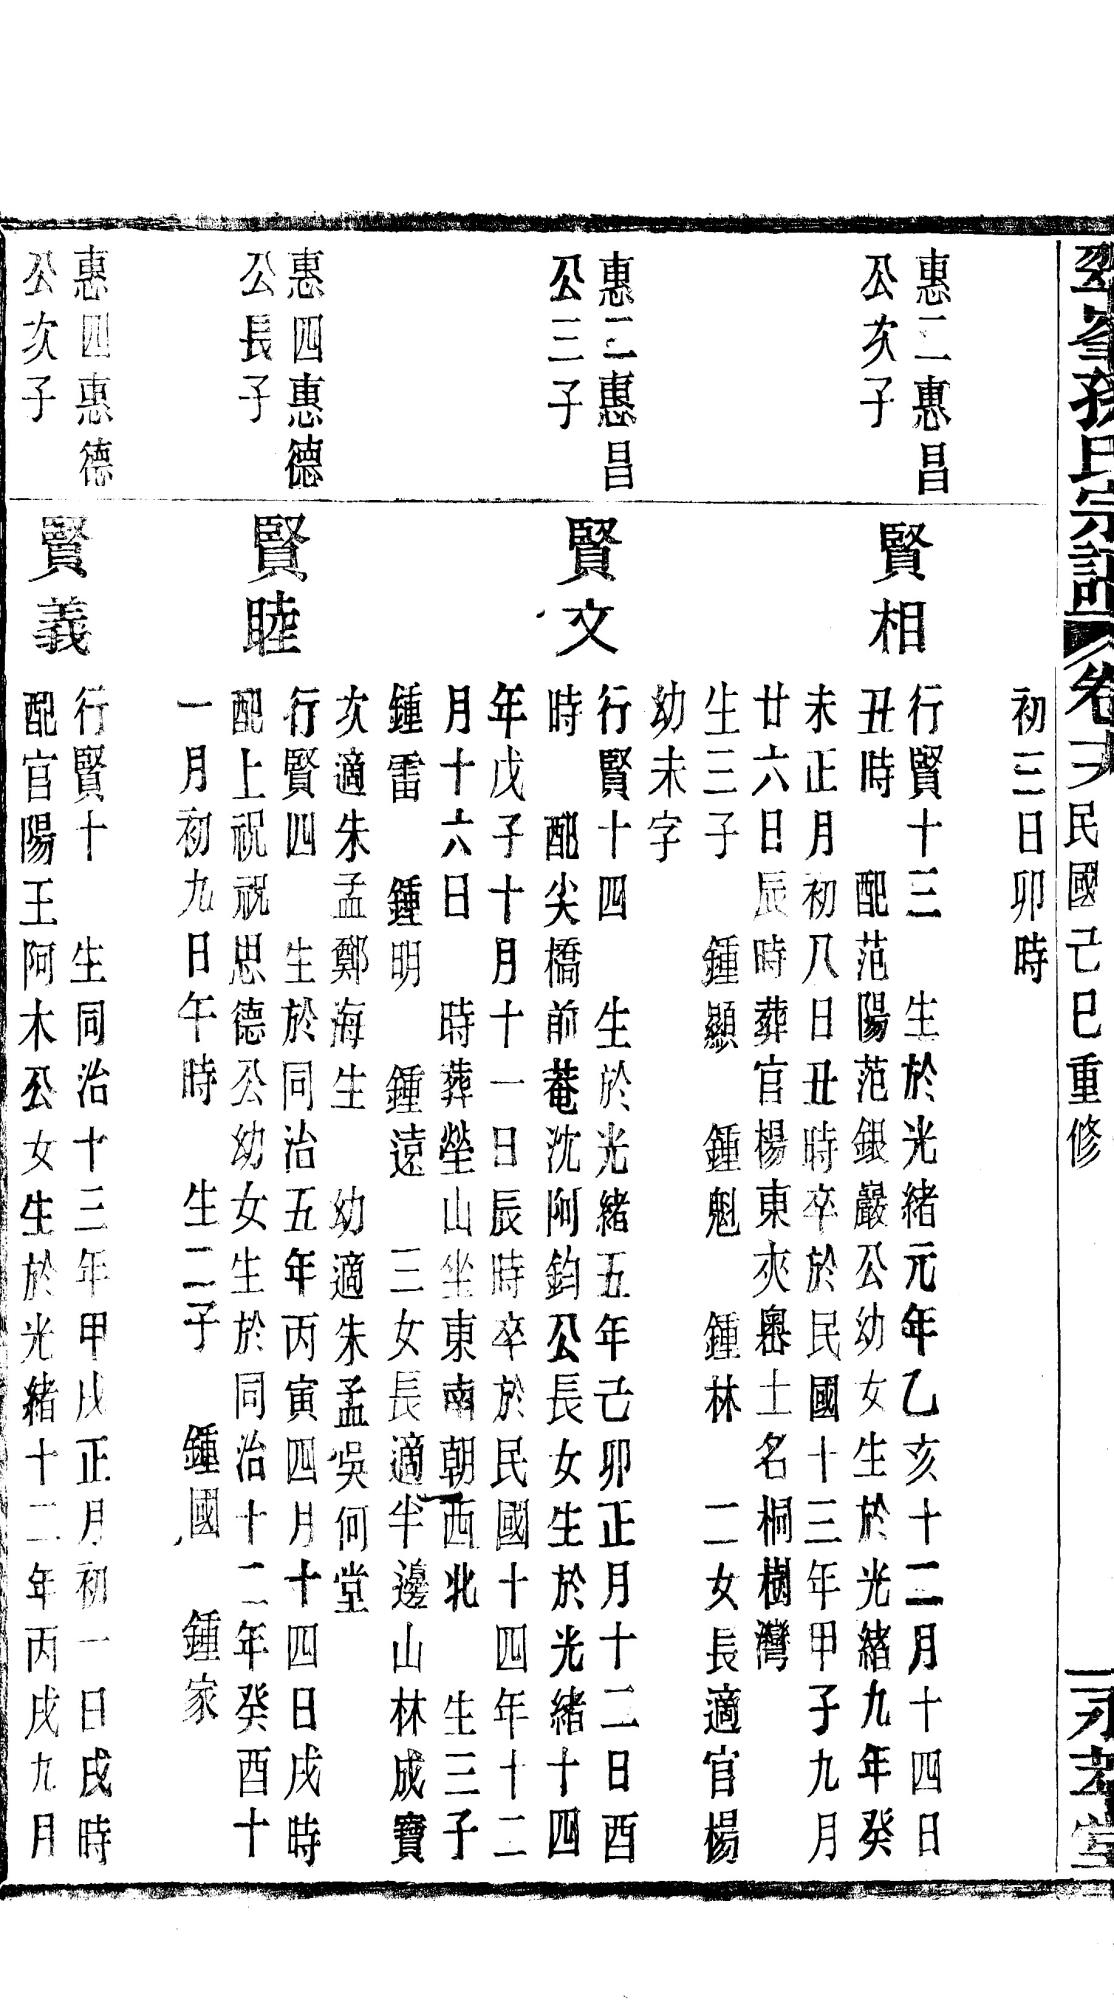 孫氏宗譜 卷 民國己巳重修 堂
初三日卯時
惠二惠昌
公次子
賢相
行賢十三 生於光緒元年乙亥十二月十四日
丑時 配范陽范銀巖公幼女生於光緒九年癸
未正月初八日丑時卒於民國十三年甲子九月
廿六日辰時葬官楊東夾嶴士名桐樹灣
生三子 鍾顯 鍾魁 鍾林 二女長適官楊
幼未字
惠二惠昌
公三子
賢文
行賢十四 生於光緒五年己卯正月十二日酉
時 配尖橋前菴沈阿鈞公長女生於光緒十四
年戊子十月十一日辰時卒於民國十四年十二
月十六日 時葬塋山坐東南朝西北 生三子
鍾雷 鍾明 鍾遠 三女長適半邊山林成寶
次適朱孟鄭海生 幼適朱孟吳何堂
惠四惠德
公長子
賢睦
行賢四 生於同治五年丙寅四月十四日戌時
配上祝祝思德公幼女生於同治十二年癸酉十
一月初九日午時 生二子 鍾國 鍾家
惠四惠德
公次子
賢義
行賢十 生同治十三年甲戌正月初一日戌時
配官陽王阿木公女生於光緒十二年丙戌九月